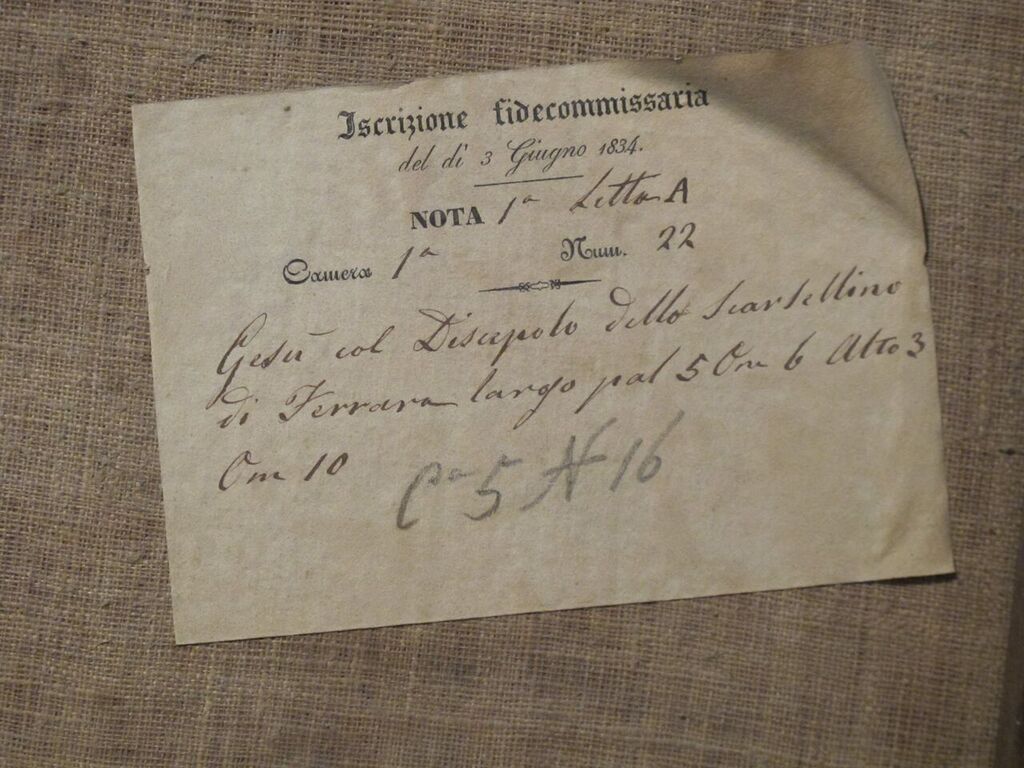 Iscrizione fidecommissaria
del dì 3 Giugno 1834.
NOTA 1ª Letta A
Camera 1ª Num. 22
Gesù col Discepolo dello Scarsellino
di Ferrara largo pal 5 On 6 Alto 3
On 10
Cª 5 N 16